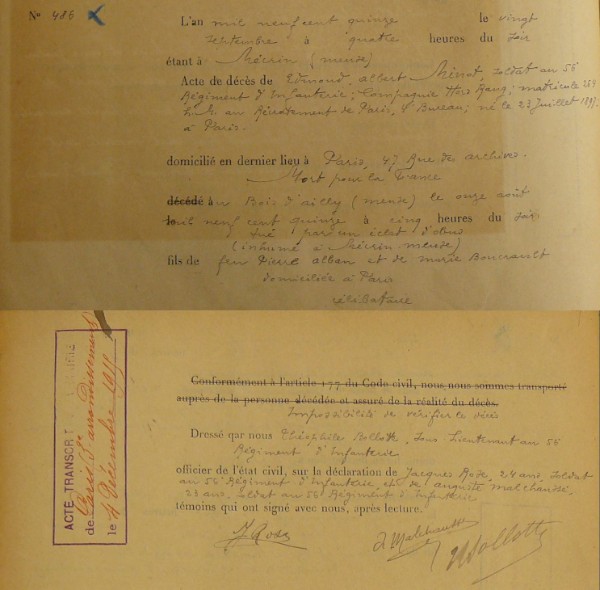 No 486
L'an mil neuf cent quinze le vingt
septembre à quatre heures du soir
étant à Mécrin (meuse)
Acte de décès de Edmond, albert Minot, soldat au 56
Régiment d'Infanterie; Compagnie Hors Rang; matricule
au Recrutement de Paris, Bureau; né le 23 Juillet
à Paris.
domicilié en dernier lieu à Paris, 47 Rue de archives.
Mort pour la France
décédé au Bois d'ailly (meuse) le onze août
mil neuf cent quinze à cinq heures du soir
tué par un éclat d'obus
(inhumé à Mécrin meuse)
fils de feu Pierre alban et de marie
domiciliée à Paris
célibataire
Conformément à l'article 77 du Code civil, nous, nous sommes transporté
auprès de la personne décédée et assuré de la réalité du décès.
Impossibilité de vérifier le décès
Dressé par nous Théophile Bollotte, Sous Lieutenant au 56
Régiment d'Infanterie
officier de l'état civil, sur la déclaration de Jacques Rode, 24 ans, soldat
au 56e Régiment d'Infanterie, et de auguste malchaussé,
23 ans, soldat au 56e Régiment d'Infanterie
témoins qui ont signé avec nous, après lecture.
J Rode
A Malchaussé
Bollotte
ACTE TRANSCRIT
de Paris 3e arrondissement
le 4 Décembre 1915